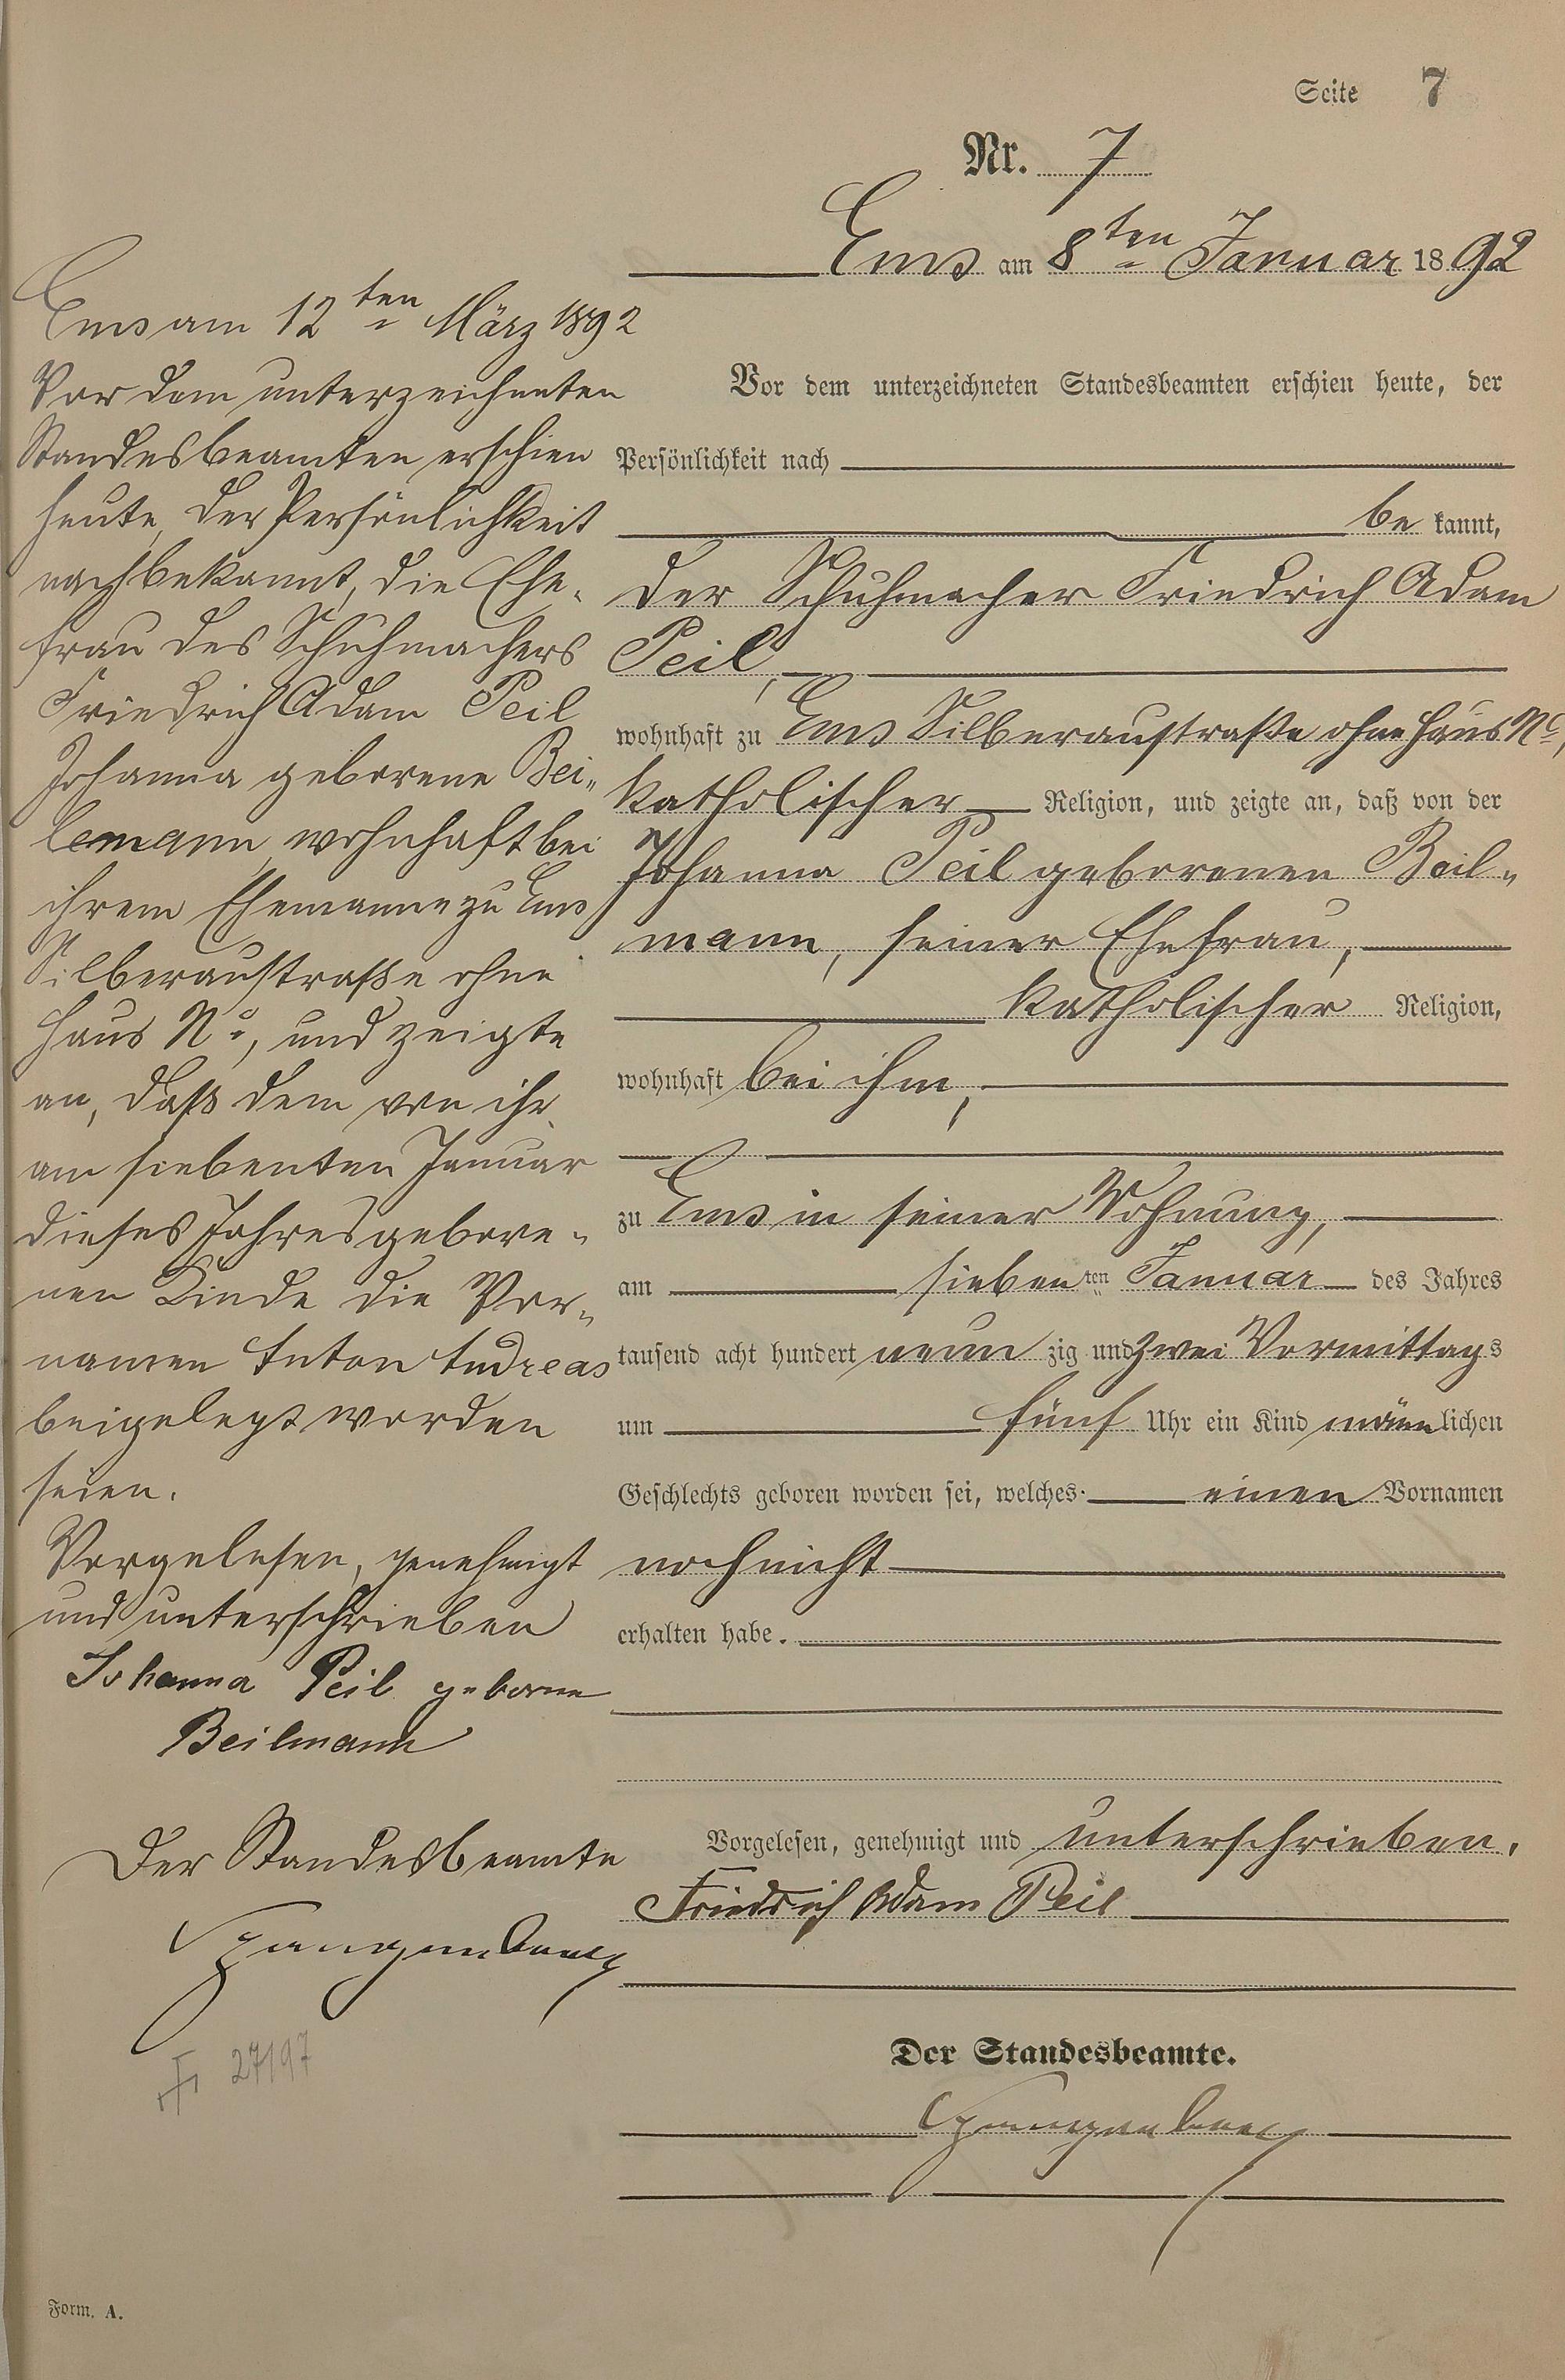 Seite 7
Nr. 7
Ems am 8ten Januar 1892
Vor dem unterzeichneten Standesbeamten erschien heute, der
Persönlichkeit nach
be kannt,
der Schuhmacher Friedrich Adam
Peil,
wohnhaft zu Ems Silberaustraße ohne Haus No,
katholischer Religion, und zeigte an, daß von der
Johanna Peil geborenen Beil„
mann, seiner Ehefrau,
katholischer Religion,
wohnhaft bei ihm,
zu Ems in seiner Wohnung,
am siebenten Januar des Jahres
tausend acht hundert neun zig und zwei Vormittags
um fünf Uhr ein Kind männlichen
Geschlechts geboren worden sei, welches einen Vornamen
noch nicht
erhalten habe.
Vorgelesen, genehmigt und unterschrieben.
Friedrich Adam Peil
Der Standesbeamte.
Spangenberg
Ems am 12ten März 1892
Vor dem unterzeichneten
Standesbeamten erschien
heute, der Persönlichkeit
nach bekannt, die Ehe„
frau des Schuhmachers
Friedrich Adam Peil
Johanna geborene Bei„
lemann, wohnhaft bei
ihrem Ehemanne zu Ems
Silberaustraße ohne
Haus No, und zeigte
an, daß dem von ihr
am siebenten Januar
dieses Jahres gebore„
nen Kinde die Vor„
namen Anton Andreas
beigelegt worden
seien.
Vorgelesen, genehmigt
und unterschrieben
Johanna Peil geborne
Beilmann
Der Standesbeamte
Spangenberg
27197
Form. A.